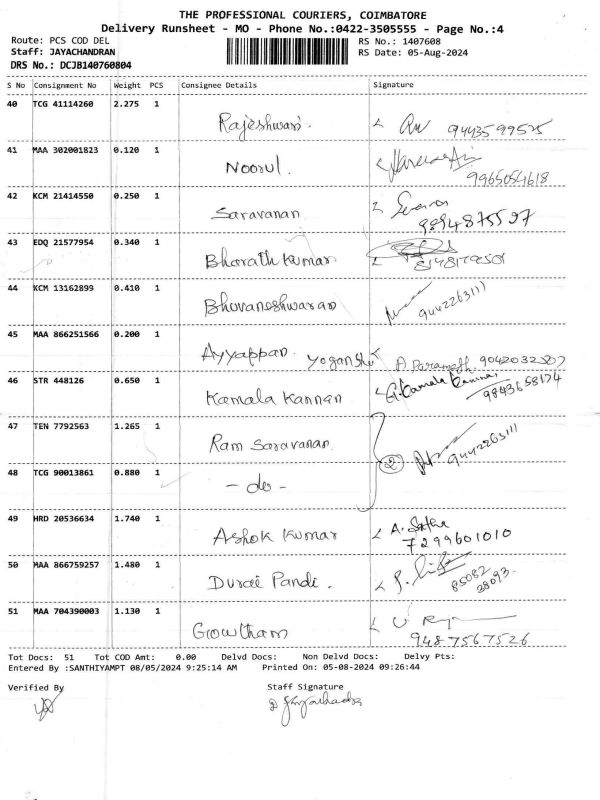 THE PROFESSIONAL COURIERS, COIMBATORE
Delivery Runsheet - MO - Phone No.:0422-3505555 - Page No.:4
Route: PCS COD DEL RS No.: 1407608
Staff: JAYACHANDRAN RS Date: 05-Aug-2024
DRS No.: DCJB140760804
S No Consignment No Weight PCS Consignee Details Signature
40 TCG 41114260 2.275 1 Rajeshwari. 9443599525
41 MAA 302001823 0.120 1 Noorul. 9965054618
42 KCM 21414550 0.250 1 Saravanan 9894875597
43 EDQ 21577954 0.340 1 Bharath Kumar 8148179501
44 KCM 13162899 0.410 1 Bhuvaneshwaran 9442263111
45 MAA 866251566 0.200 1 Ayyappan. A. Paramesh
46 STR 448126 0.650 1 Kamala Kannan G. Kamala Kannan 9843658174
47 TEN 7792563 1.265 1 Ram Saravanan 2 9442263111
48 TCG 90013861 0.880 1 - do -
49 HRD 20536634 1.740 1 Ashok Kumar A. 7299601010
50 MAA 866759257 1.480 1 Durai Pandi. 85082 28093
51 MAA 704390003 1.130 1 Growtham 9487567526
Tot Docs: 51 Tot COD Amt: 0.00 Delvd Docs: Non Delvd Docs: Delvy Pts:
Entered By :SANTHIYAMPT 08/05/2024 9:25:14 AM Printed On: 05-08-2024 09:26:44
Verified By Staff Signature